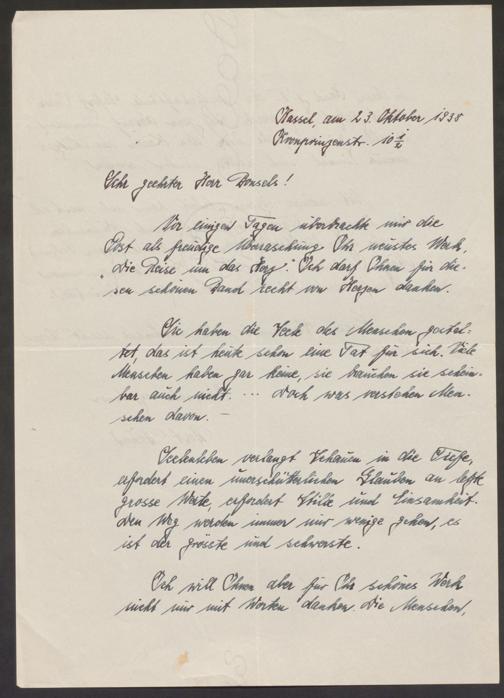 Kassel, am 23. Oktober 1938
Kronprinzenstr. 10 1/2
Sehr geehrter Herr Bonsels!
Vor einigen Tagen überbrachte mir die
Post als freudige Überraschung Ihr neustes Werk,
"Die Reise um das Herz." Ich darf Ihnen für die-
sen schönen Band recht von Herzen danken.
Sie haben die Seele des Menschen gestal-
tet, das ist heute schon eine Tat für sich. Viele
Menschen haben gar keine, sie brauchen sie schein-
bar auch nicht. ... Doch was verstehen Men-
schen davon. –
Seelenleben verlangt Schauen in die Tiefe,
erfordert einen unerschütterlichen Glauben an letzte
grosse Werte, erfordert Stille und Einsamkeit.
Den Weg werden immer nur wenige gehen, es
ist der grösste und schwerste.
Ich will Ihnen aber für Ihr schönes Werk
nicht nur mit Worten danken. Die Menschen,